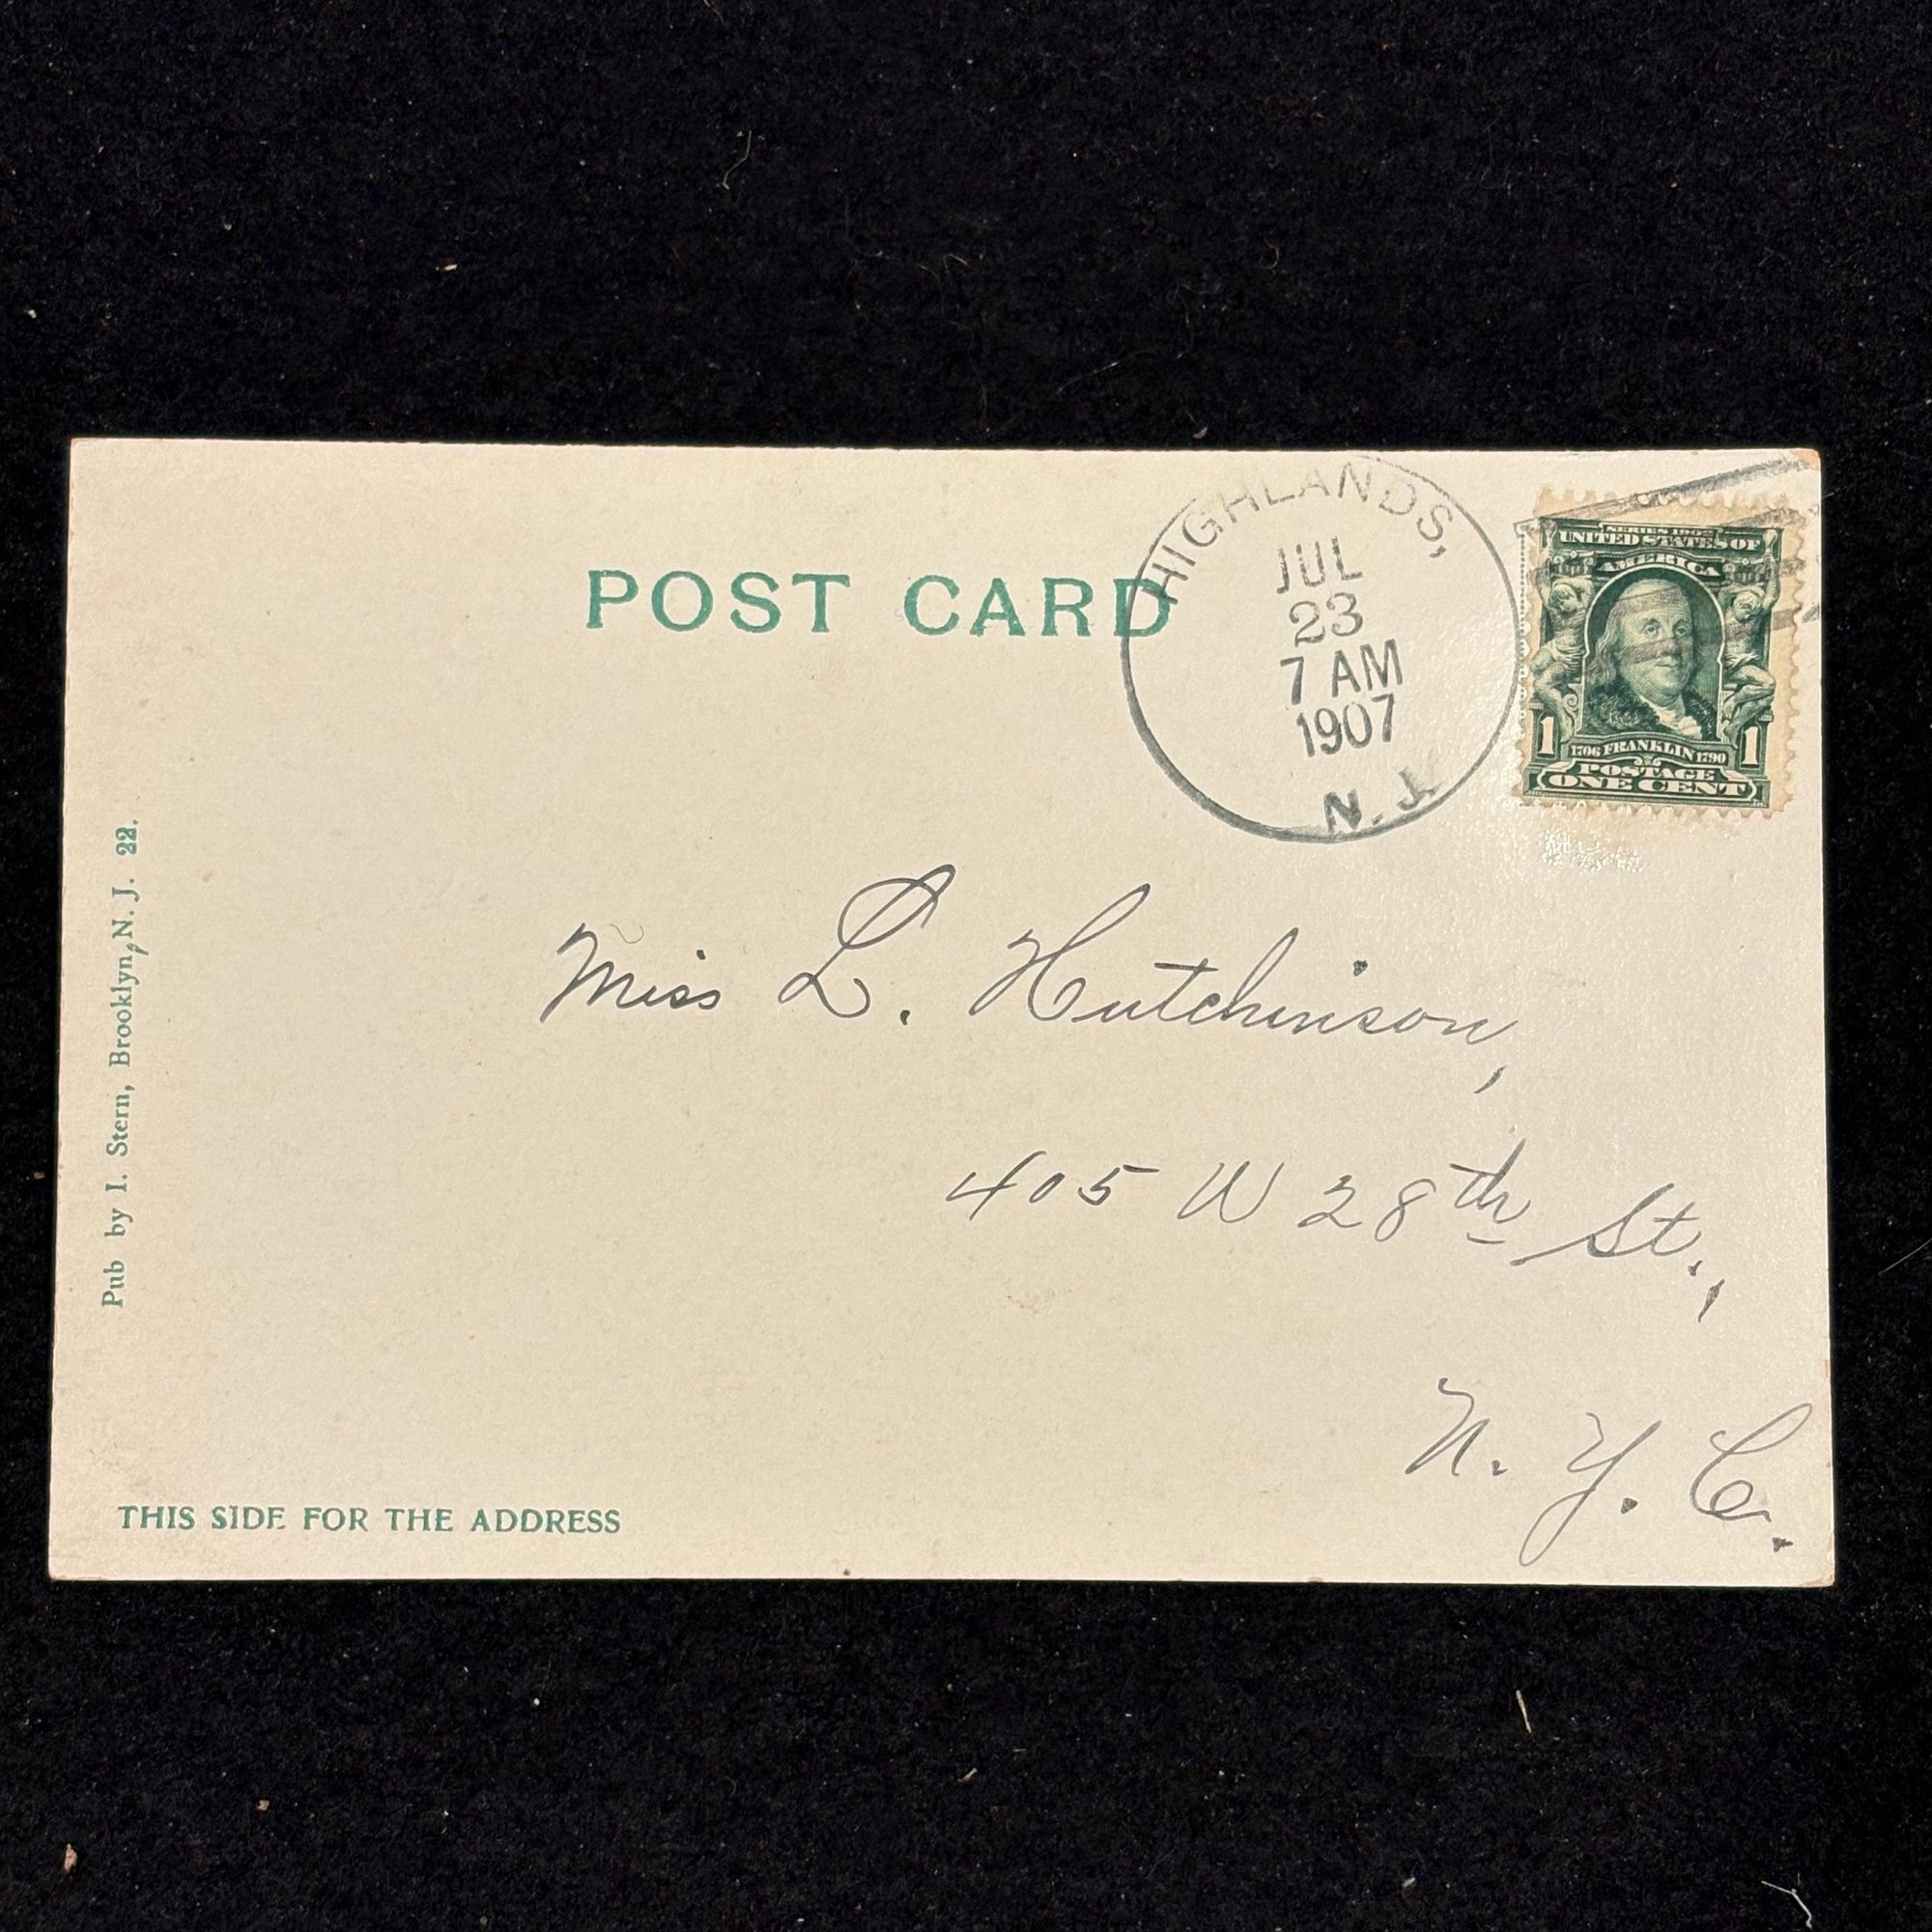 POST CARD
HIGHLANDS,
JUL
23
7 AM
1907
N. J.
SERIES 1902
UNITED STATES OF
AMERICA
1 1706 FRANKLIN 1790 1
POSTAGE
ONE CENT
Miss L. Hutchinson,
405 W 28th St.,
N. Y. C.
Pub by I. Stern, Brooklyn, N. J. 22.
THIS SIDE FOR THE ADDRESS